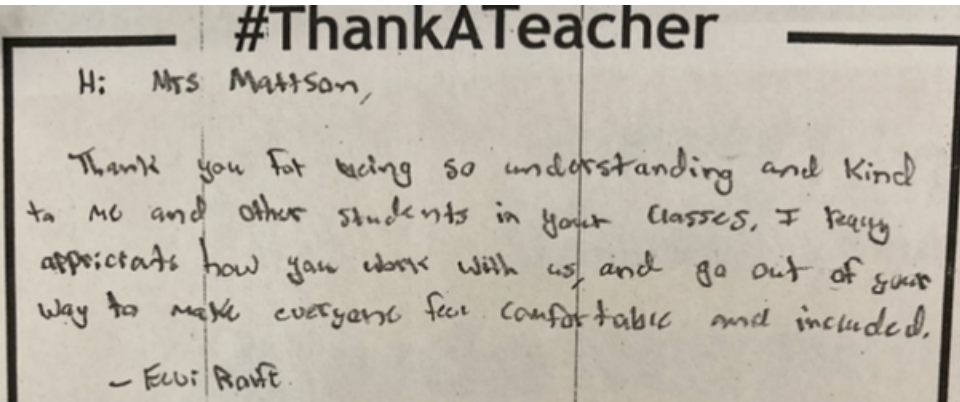 #ThankATeacher
Hi Mrs Mattson,
Thank you for being so understanding and kind
to me and other students in your classes. I really
appriciate how you work with us, and go out of your
way to make everyone feel comfortable and included.